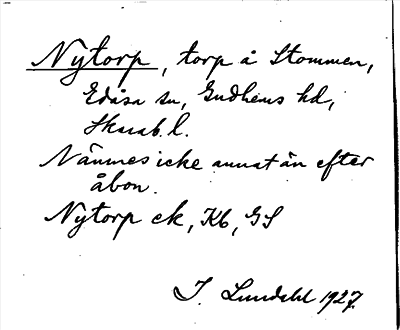 Nytorp, torp å Stommen,
Edåsa sn, Gudhems hd,
Skarab. l.
Nännes icke annat än efter
åbon.
Nytorp ek, Kb, GS
I. Lundahl 1927.